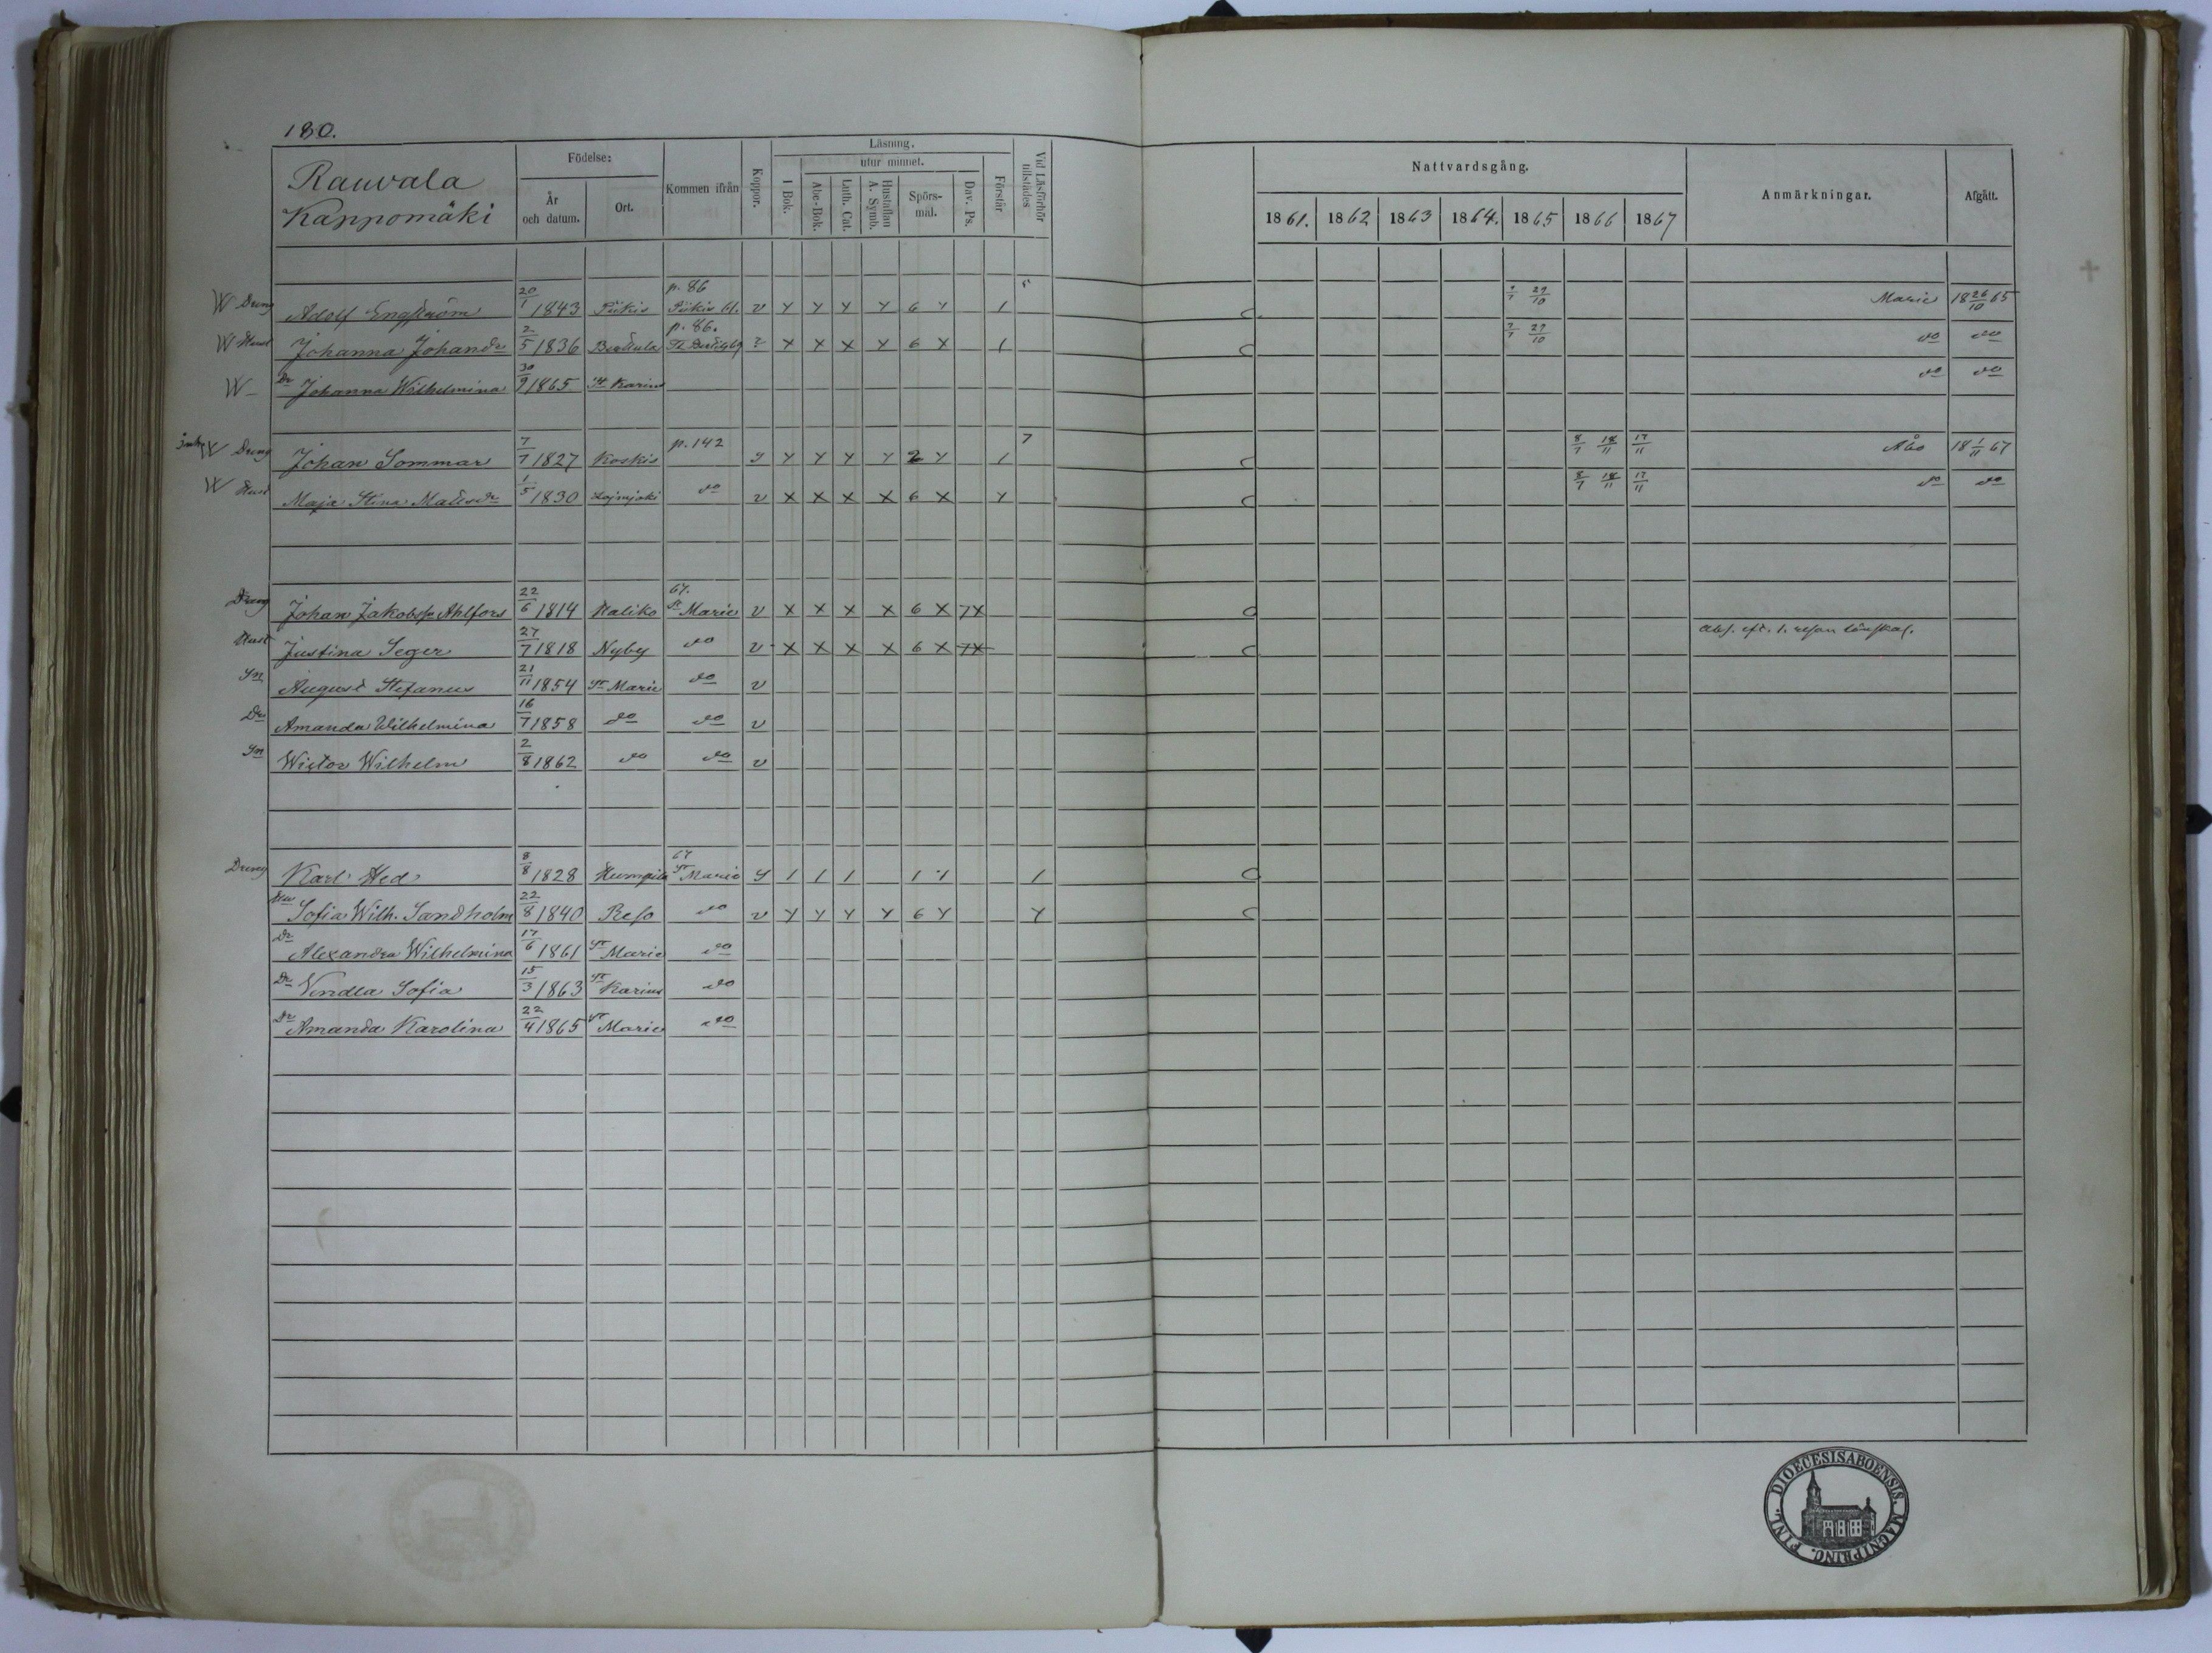 180.
Rauvala
Kappomäki
Födelse:
År och datum.
Ort.
Kommen ifrån
Koppor.
Läsning.
I Bok.
utur minnet.
Abc-Bok.
Luth. Cat.
Hustaflan A. Symb.
Spörsmål.
Dav. Ps.
Förstår
Vid Läsförhör tillstädes
Nattvardsgång.
1861. 1862 1863 1864. 1865 1866 1867
Anmärkningar.
Afgått.
W Dreng Adolf Engström 20/1 1843 Piikis p. 86 Piikis v Y Y Y Y 6 Y 1 29/10 Marie 18 26/10 65
W Hust Johanna Johandr 2/5 1836 p. 86. X X X Y 6 X 1 29/10 do do
W Dr Johanna Wilhelmina 30/9 1865 St Karins do do
W Dreng Johan Sommar 7/7 1827 Koskis p. 142 Y Y Y Y 2 Y 1 7 8/7 18/11 17/11 Åbo 18 1/11 67
W Hust Maja Stina Matsdr 1/5 1830 Loimjoki do v X X X X 6 X Y 8/7 18/11 17/11 do do
Dreng Johan Jakobss. Ahlfors 22/6 1814 Haliko 67. St Marie v X X X X 6 X 7X
Hust Justina Seger 27/7 1818 Nyby do v X X X X 6 X 7X abs. eft. 1. resan lönskal.
Sn August Stefanus 21/11 1854 St Marie do v
Dr Amanda Wilhelmina 16/7 1858 do do v
Sn Wictor Wilhelm 2/8 1862 do do v
Dreng Karl Hed 8/8 1828 Humpila 67 St Marie 1 1 1 1 1 1
Hu Sofia Wilh. Sandholm 22/8 1840 Reso do v Y Y Y Y 6 Y Y
Dr Alexandra Wilhelmina 17/6 1861 St Marie do
Dr Vendla Sofia 15/3 1863 St Karins do
Dr Amanda Karolina 22/4 1865 St Marie do
DIOECESIS ABOENSIS. MAGNI PRINC. FINL.